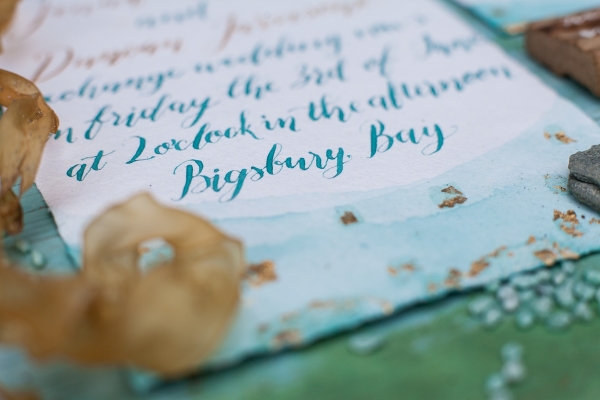 and
exchange wedding vows
on friday the 3rd of June
at 2 o'clock in the afternoon
Bigsbury. Bay